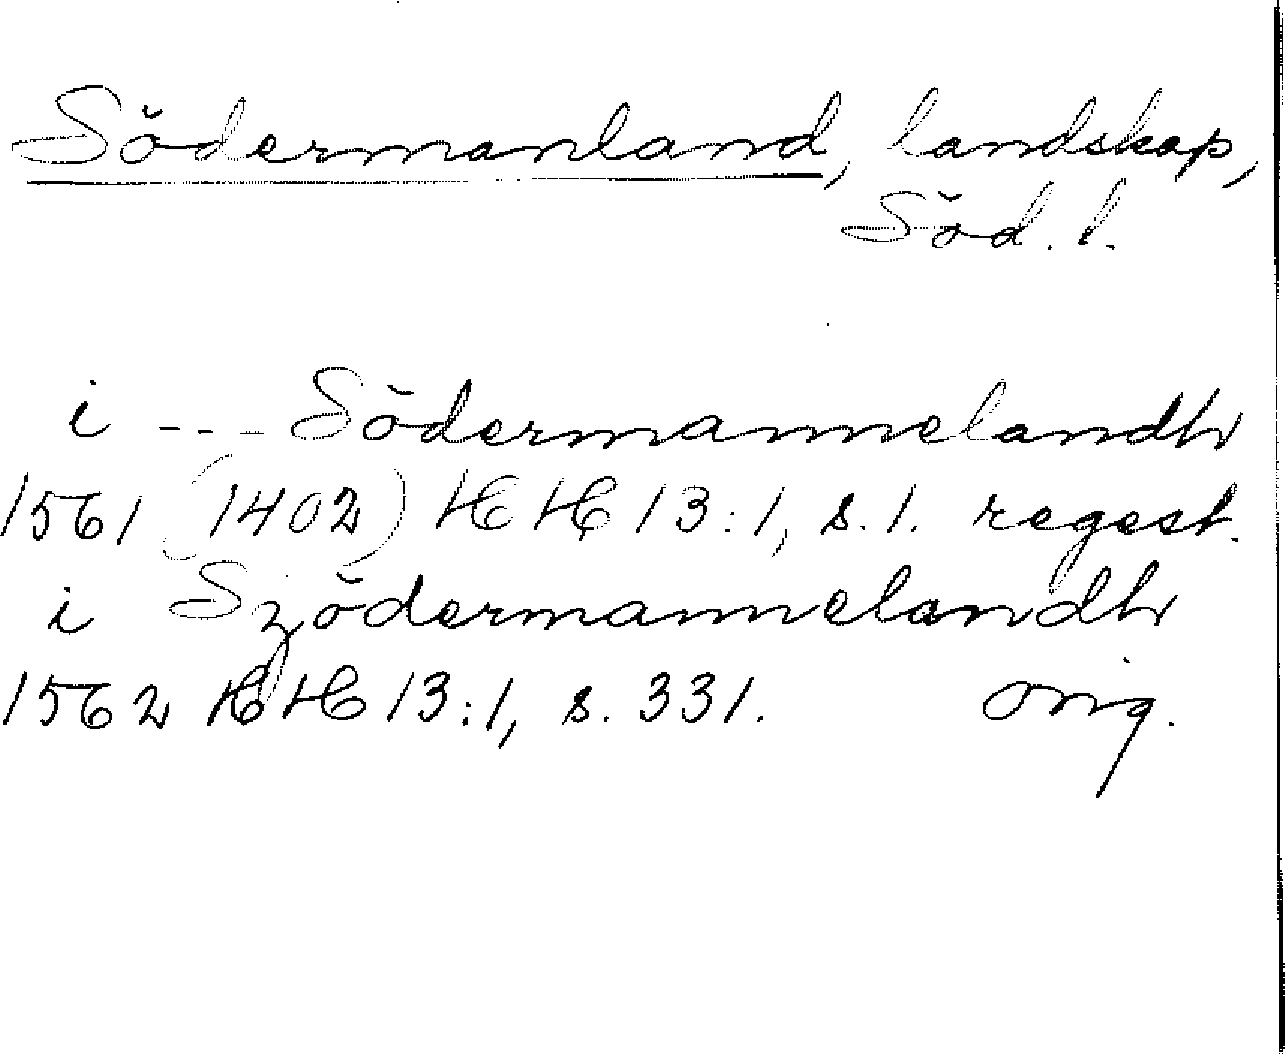 Södermanland, landskap,
Söd. l.
i --- Södermannelandh
1561 (1402) HH 13:1, s. 1. regest.
i Szödermannelandh
1562 HH 13:1, s. 331. orig.